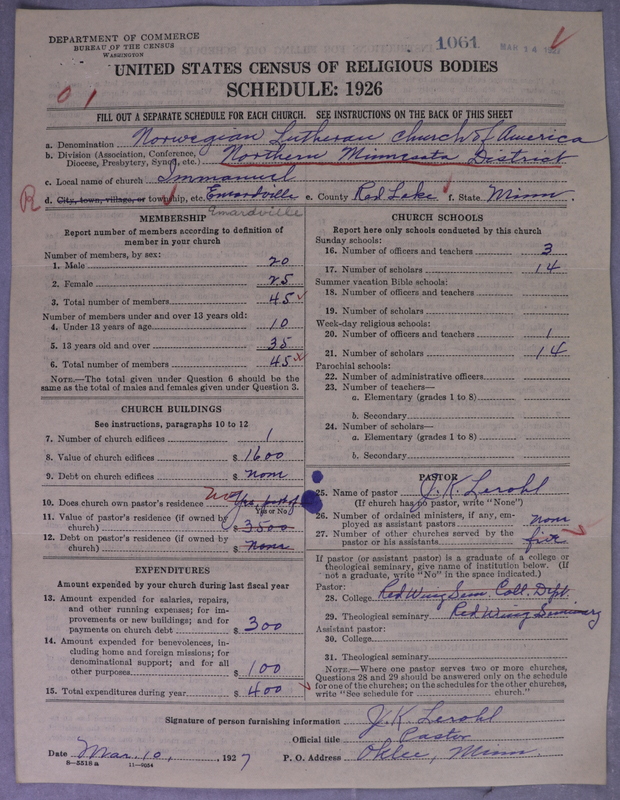 DEPARTMENT OF COMMERCE
BUREAU OF THE CENSUS
WASHINGTON
1061
MAR 14 1927
UNITED STATES CENSUS OF RELIGIOUS BODIES
SCHEDULE: 1926
01
FILL OUT A SEPARATE SCHEDULE FOR EACH CHURCH. SEE INSTRUCTIONS ON THE BACK OF THIS SHEET
a. Denomination Norwegian Lutheran Church of America
b. Division (Association, Conference, Diocese, Presbytery, Synod, etc.) Northern Minnesota District
c. Local name of church Immanuel
R
d. City, town, village, or township, etc. Emardville e. County Red Lake f. State Minn.
Emardville
MEMBERSHIP
Report number of members according to definition of
member in your church
Number of members, by sex:
1. Male 20
2. Female 25
3. Total number of members 45
Number of members under and over 13 years old:
4. Under 13 years of age 10
5. 13 years old and over 35
6. Total number of members 45
NOTE.—The total given under Question 6 should be the
same as the total of males and females given under Question 3.
CHURCH BUILDINGS
See instructions, paragraphs 10 to 12
7. Number of church edifices 1
8. Value of church edifices $ 1600
9. Debt on church edifices $ none
10. Does church own pastor's residence Yes, part of
Yes or No
11. Value of pastor's residence (if owned by
church) $ 3500
12. Debt on pastor's residence (if owned by
church) $ none
EXPENDITURES
Amount expended by your church during last fiscal year
13. Amount expended for salaries, repairs,
and other running expenses; for im-
provements or new buildings; and for
payments on church debt $ 300
14. Amount expended for benevolences, in-
cluding home and foreign missions; for
denominational support; and for all
other purposes $ 100
15. Total expenditures during year $ 400
CHURCH SCHOOLS
Report here only schools conducted by this church
Sunday schools:
16. Number of officers and teachers 3
17. Number of scholars 14
Summer vacation Bible schools:
18. Number of officers and teachers
19. Number of scholars
Week-day religious schools:
20. Number of officers and teachers 1
21. Number of scholars 14
Parochial schools:
22. Number of administrative officers
23. Number of teachers—
a. Elementary (grades 1 to 8)
b. Secondary
24. Number of scholars—
a. Elementary (grades 1 to 8)
b. Secondary
PASTOR
25. Name of pastor J. K. Lerohl
(If church has no pastor, write "None")
26. Number of ordained ministers, if any, em-
ployed as assistant pastors none
27. Number of other churches served by the
pastor or his assistants five
If pastor (or assistant pastor) is a graduate of a college or
theological seminary, give name of institution below. (If
not a graduate, write "No" in the space indicated.)
Pastor:
28. College Red Wing Sem. Coll. Dept.
29. Theological seminary Red Wing Seminary
Assistant pastor:
30. College
31. Theological seminary
NOTE.—Where one pastor serves two or more churches,
Questions 28 and 29 should be answered only on the schedule
for one of the churches; on the schedules for the other churches,
write "See schedule for church."
Signature of person furnishing information J. K. Lerohl
Official title Pastor
Date Mar. 10, 1927 P. O. Address Oklee, Minn.
8-5518a 11-9054